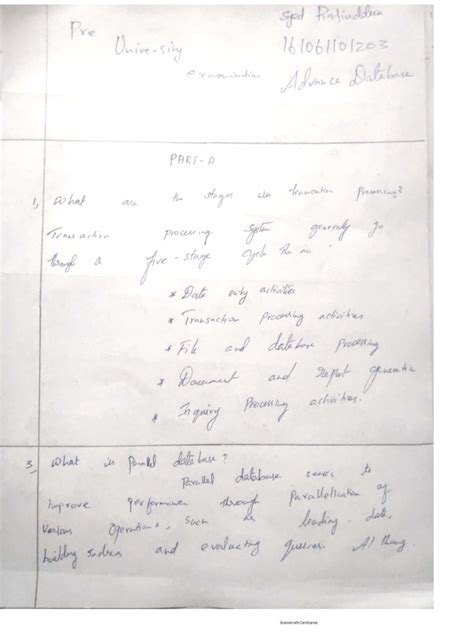 Pre
University
examination
Syed
161061101203
Advance Database
PART-A
1, What are the stages in Processing?
Transaction processing system generally go
through a five-stage cycle
* Data entry activities
* Transaction processing activities
* File and database processing
* Document and Report generation
* Inquiry Processing activities.
3, What is Parallel database?
Parallel database seeks to
improve performance through Parallelization of
various operations, such as loading data,
building and evaluating queries.
Scanned with CamScanner